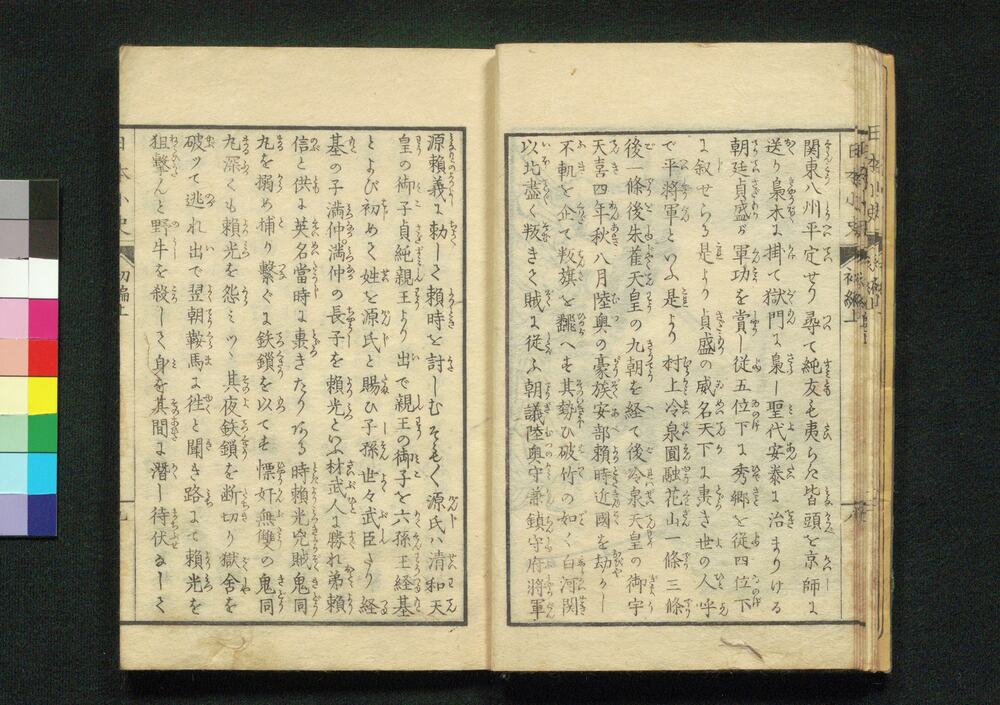 関東八州平定せり尋て純友も夷らた皆頭を京師に
送り梟木に掛て獄門に梟し聖代安泰に治まりける
朝廷貞盛が軍功を賞し従五位下に秀郷を従四位下
に叙せらる是より貞盛の威名天下に轟き世の人呼
で平将軍といふ是より村上冷泉圓融花山一條三條
後一條後朱雀天皇の九朝を経て後冷泉天皇の御宇
天喜四年秋八月陸奥の豪族安部頼時近國を劫かし
不軌を企て叛旗を飜へも其勢ひ破竹の如く白河関
以北盡く叛きて賊に従ふ朝議陸奥守兼鎮守府將軍
源頼義に勅して頼時を討しむそも〱源氏ハ清和天
皇の御子貞純親王より出で親王の御子を六孫王経基
とよび初めて姓を源氏と賜ひ子孫世々武臣たり経
基の子満仲満仲の長子を頼光といふ材武人に勝れ弟頼
信と供に英名當時に轟きたり或る時頼光兇賊鬼同
丸を搦め捕り繋ぐに鉄鎖を以ても慓奸無雙の鬼同
丸深くも頼光を怨ミつゝ其夜鉄鎖を断切り獄舎を
破つて逃れ出で翌朝鞍馬に徃と聞き路にて頼光を
狙撃んと野牛を殺して身を其間に潜し待伏なして
日本小史
初編上